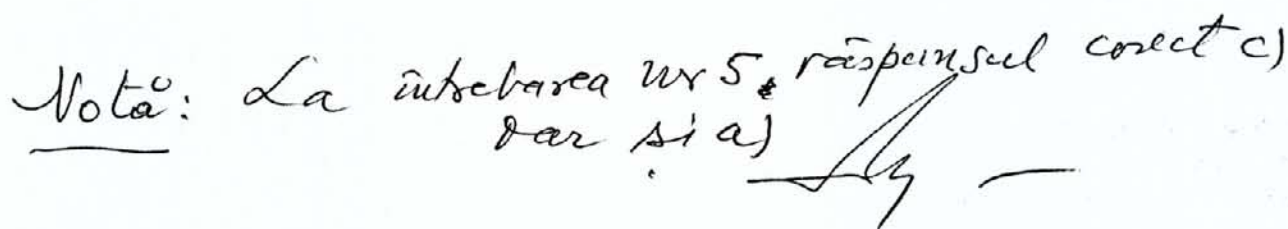 Notă: La întrebarea nr 5, răspunsul corect c)
dar și a)